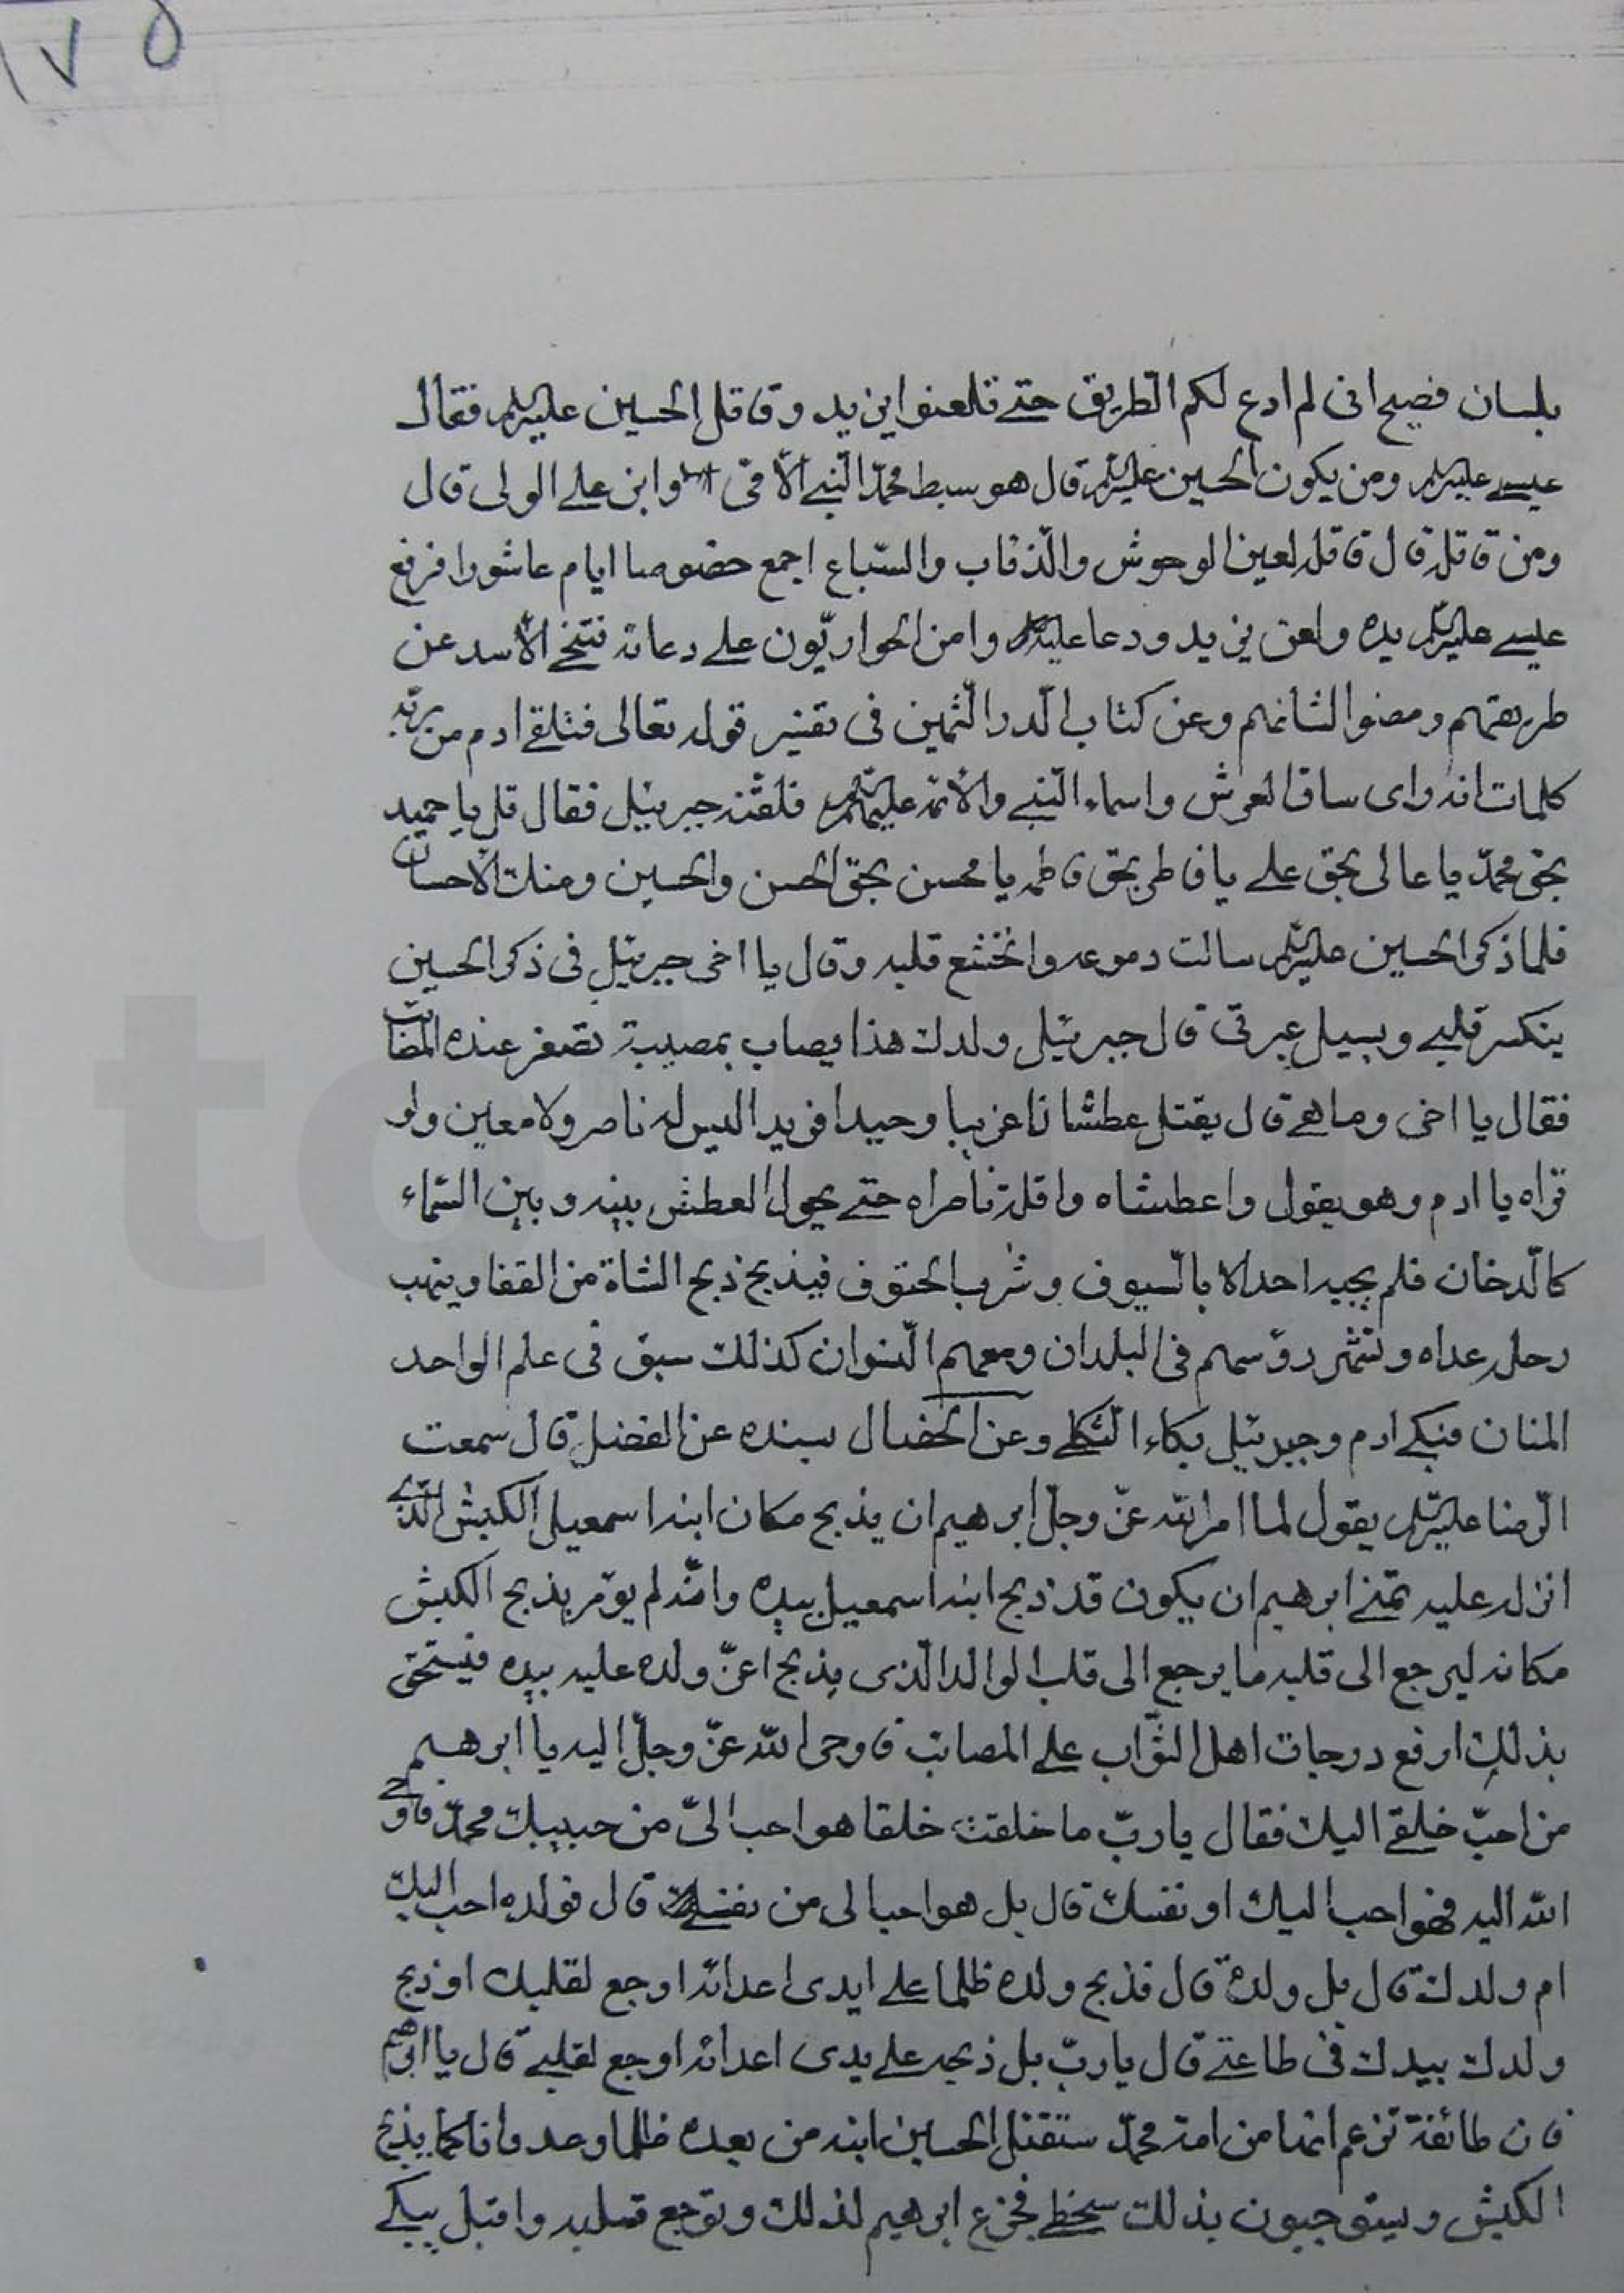 ١٧٥
بلسان فصيح انى لم ادع لكم الطريق حتى تلعنوا يزيد وقاتل الحسين عليه السلم فقال
عيسى عليه السلم ومن يكون الحسين عليه السلم قال هو سبط محمد النبى الامّى وابن على الولى قال
ومن قاتله قال قاتله لعين الوحوش والذئاب والسّباع اجمع خصوصا ايام عاشورا فرفع
عيسى عليه السلم يده ولعن يزيد ودعا عليه وامن الحواريّون على دعائه فتنحى الاسد عن
طريقهم ومضوا لشانهم وعن كتاب الدر الثمين فى تفسير قوله تعالى فتلقى ادم من ربّه
كلمات انه راى ساق العرش واسماء النبى والائمه عليهم السلم فلقّنه جبرئيل فقال قل يا حميد
بحق محمّد يا عالى بحق على يا فاطر بحق فاطمه يا محسن بحق الحسن والحسين ومنك الاحسان
فلما ذكر الحسين عليه السلم سالت دموعه وانخشع قلبه وقال يا اخى جبرئيل فى ذكر الحسين
ينكسر قلبى ويسيل عبرتى قال جبرئيل ولدك هذا يصاب بمصيبة تصغر عنده المصائب
فقال يا اخى وما هى قال يقتل عطشانا غريبا وحيدا فريدا ليس له ناصر ولا معين ولو
تراه يا ادم وهو يقول واعطشاه واقلة ناصراه حتى يحول العطش بينه وبين السّماء
كالدخان فلم يجبه احد الا بالسيوف وشرب الحتوف فيذبح ذبح الشاة من القفا وينهب
رحله عداه وتشهر رؤسهم فى البلدان ومعهم النسوان كذلك سبق فى علم الواحد
المنان فبكى ادم وجبرئيل بكاء الثكلى وعن الخصال بسنده عن الفضل قال سمعت
الرضا عليه السلم يقول لما امر الله عزّ وجلّ ابرهيم ان يذبح مكان ابنه اسمعيل الكبش الذى
انزله عليه تمنى ابرهيم ان يكون قد ذبح ابنه اسمعيل بيده وانّه لم يؤمر بذبح الكبش
مكانه ليرجع الى قلبه ما يرجع الى قلب الوالد الذى يذبح اعزّ ولده عليه بيده فيستحق
بذلك ارفع درجات اهل الثواب على المصائب فاوحى الله عزّ وجلّ اليه يا ابرهيم
من احبّ خلقى اليك فقال يا ربّ ما خلقت خلقا هو احب الىّ من حبيبك محمّد فاوحى
الله اليه فهو احب اليك او نفسك قال بل هو احب الى من نفسى قال فولده احب اليك
ام ولدك قال بل ولده قال فذبح ولده ظلما على ايدى اعدائه اوجع لقلبك او ذبح
ولدك بيدك فى طاعتى قال يا ربّ بل ذبحه على يدى اعدائه اوجع لقلبى قال يا ابرهيم
فان طائفة تزعم انها من امة محمّد ستقتل الحسين ابنه من بعده ظلما وعدوانا كما يذبح
الكبش ويستوجبون بذلك سخطى فجزع ابرهيم لذلك وتوجع قلبه واقبل يبكى